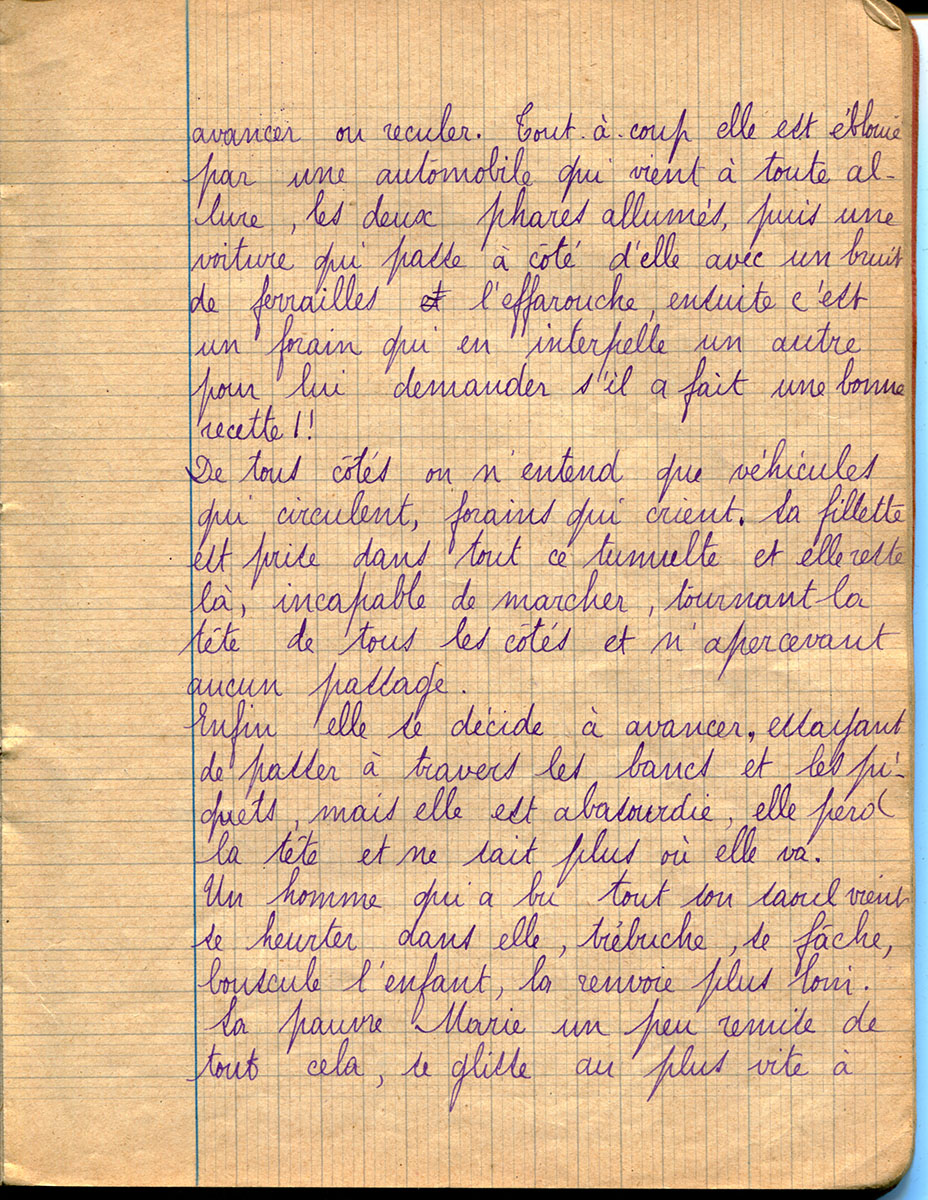 avancer ou reculer. Tout-à-coup elle est éblouie
par une automobile qui vient à toute al-
lure, les deux phares allumés, puis une
voiture qui passe à côté d'elle avec un bruit
de ferrailles l'effarouche, ensuite c'est
un forain qui en interpelle un autre
pour lui demander s'il a fait une bonne
recette!!
De tous côtés on n'entend que véhicules
qui circulent, forains qui crient. La fillette
est prise dans tout ce tumulte et elle reste
là, incapable de marcher, tournant la
tête de tous les côtés et n'apercevant
aucun passage.
Enfin elle se décide à avancer, essayant
de passer à travers les bancs et les pi-
quets, mais elle est abasourdie, elle perd
la tête et ne sait plus où elle va.
Un homme qui a bu tout son saoul vient
se heurter dans elle, trébuche, se fâche,
bouscule l'enfant, la renvoie plus loin.
La pauvre Marie un peu remise de
tout cela, se glisse au plus vite à